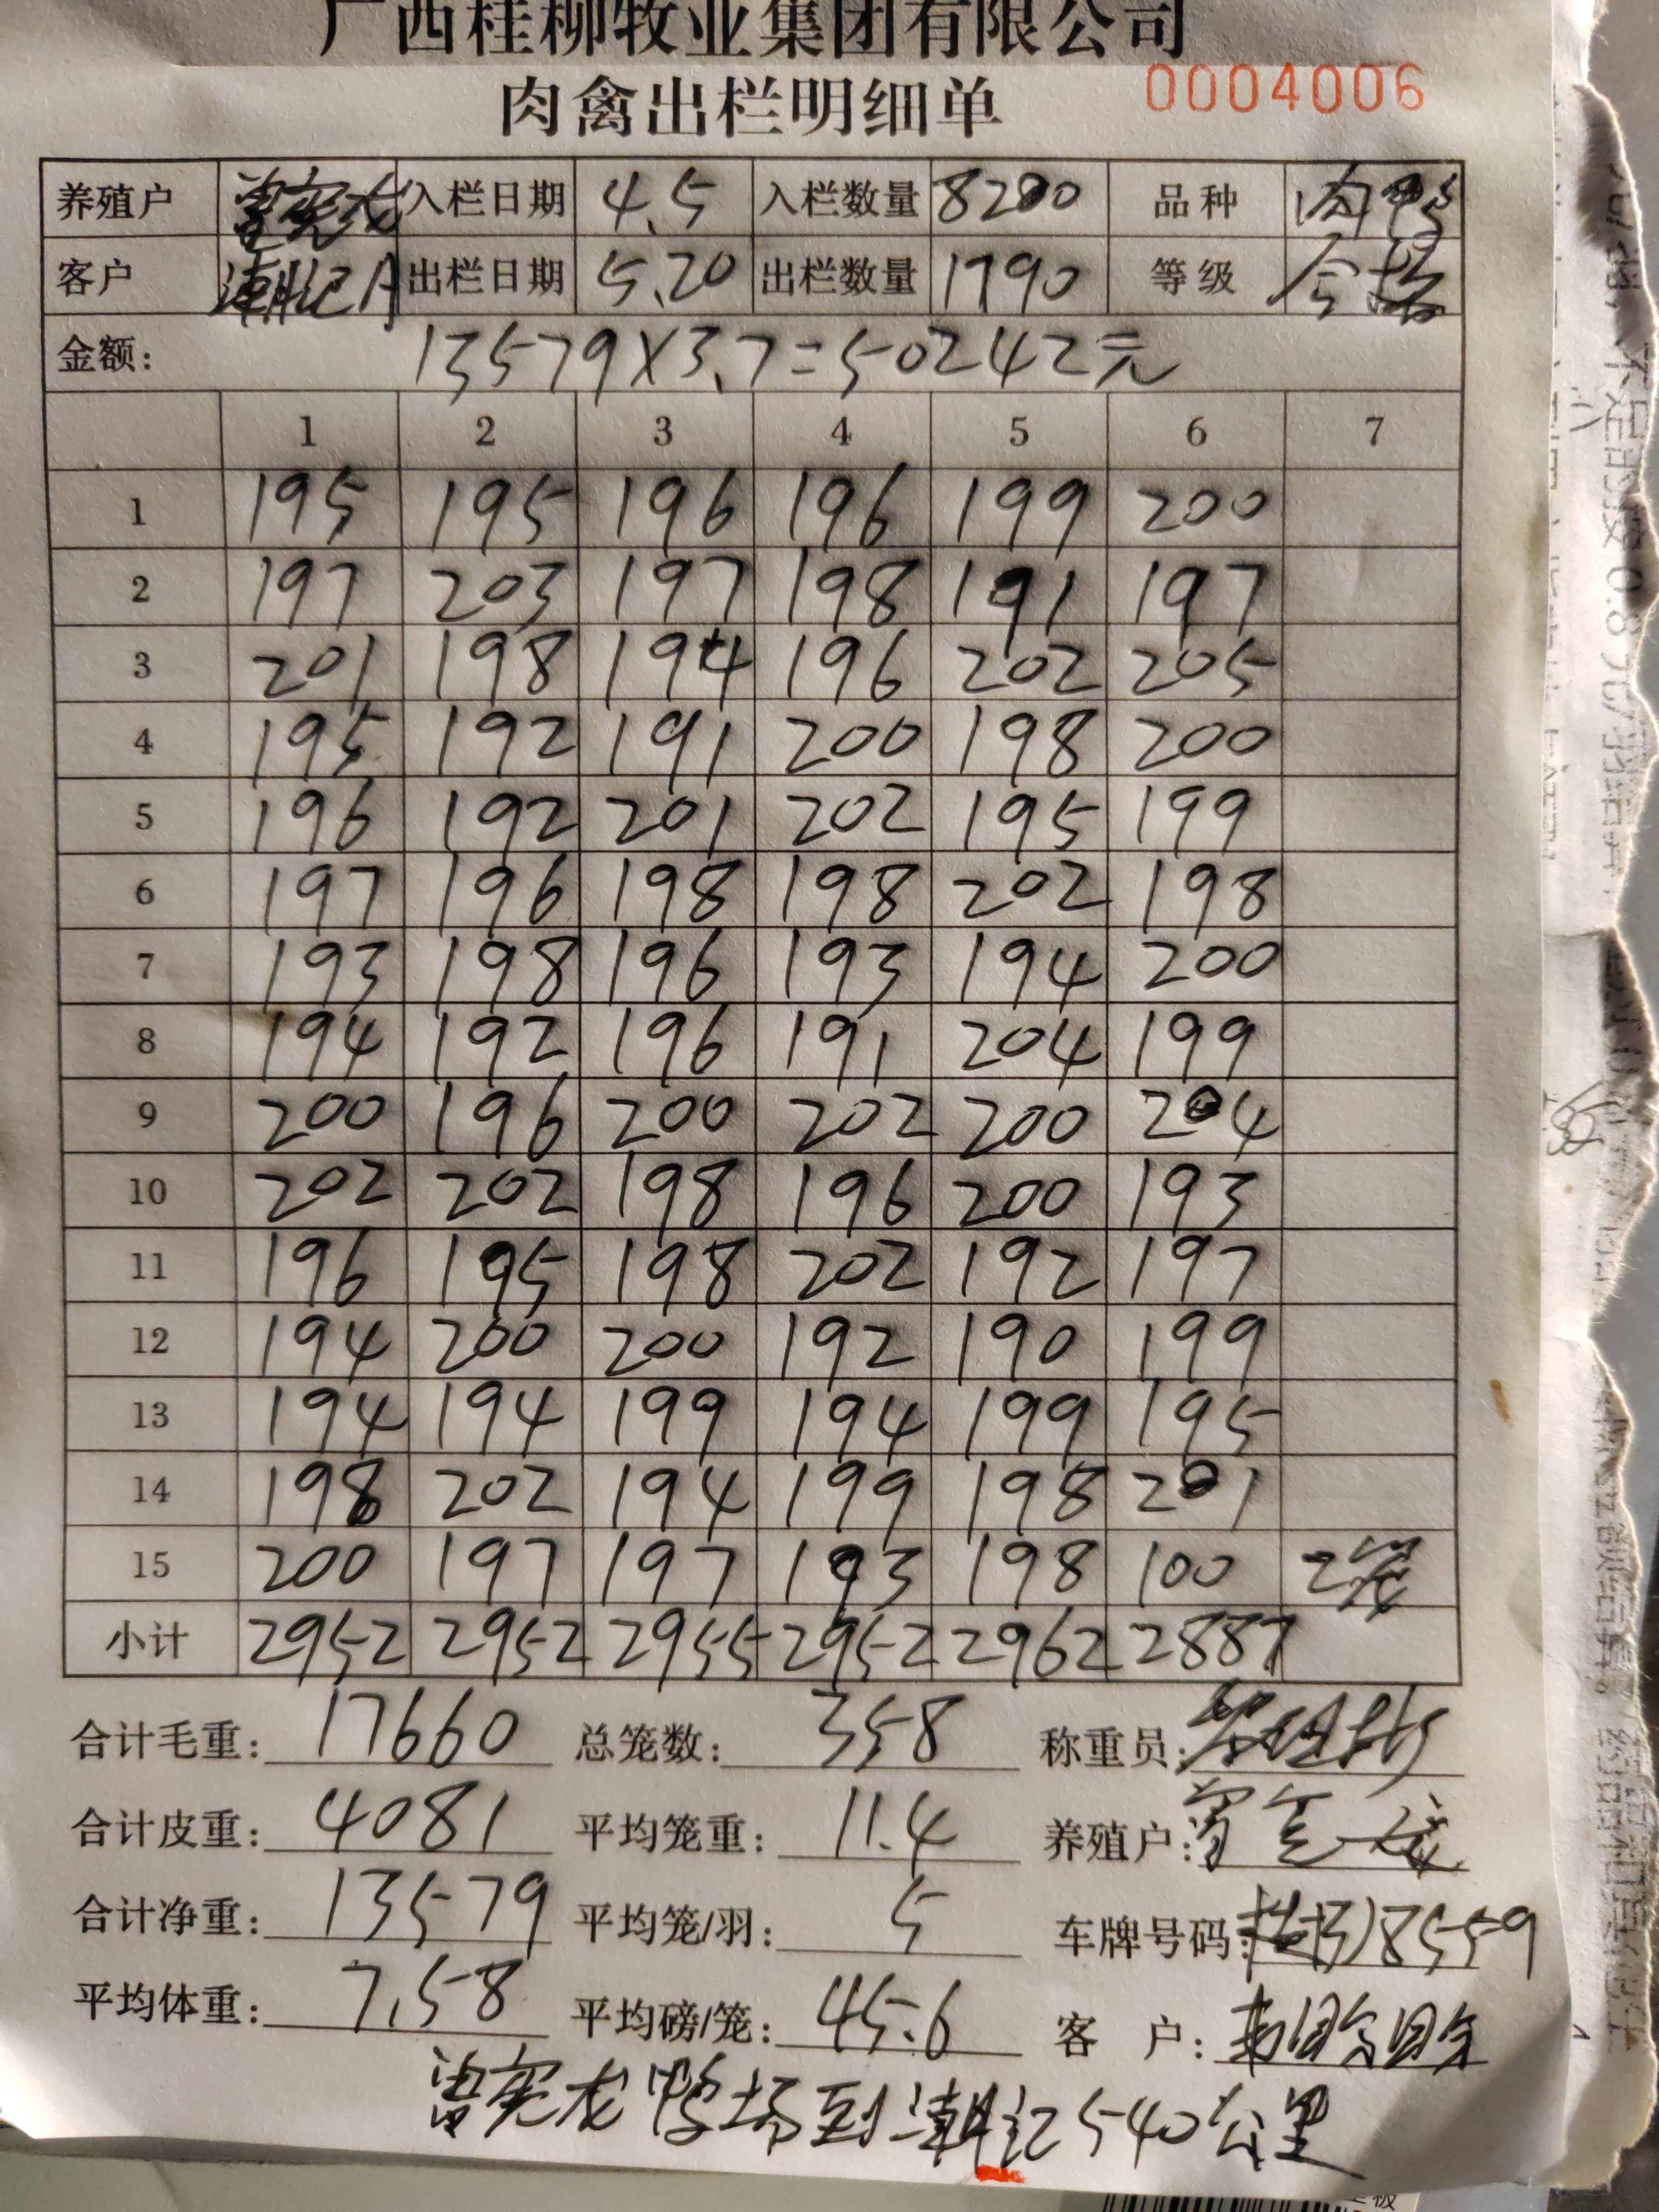 广西桂柳牧业集团有限公司
肉禽出栏明细单 0004006
养殖户 曾宪龙 入栏日期 4.5 入栏数量 8200 品种 肉鸭
客户 潮记A 出栏日期 5.20 出栏数量 1790 等级 合格
金额: 13579×3.7=50242元
1 2 3 4 5 6 7
1 195 195 196 196 199 200
2 197 203 197 198 191 197
3 201 198 194 196 202 205
4 195 192 191 200 198 200
5 196 192 201 202 195 199
6 197 196 198 198 202 198
7 193 198 196 193 194 200
8 194 192 196 191 204 199
9 200 196 200 202 200 204
10 202 202 198 196 200 193
11 196 195 198 202 192 197
12 194 200 200 192 190 199
13 194 194 199 194 199 195
14 198 202 194 199 198 201
15 200 197 197 193 198 100 2笼
小计 2952 2952 2955 2952 2962 2887
合计毛重: 17660 总笼数: 358 称重员:
合计皮重: 4081 平均笼重: 11.4 养殖户:
合计净重: 13579 平均笼/羽: 5 车牌号码: 8559
平均体重: 7.58 平均磅/笼: 45.6 客 户:
曾宪龙鸭场到潮记540公里